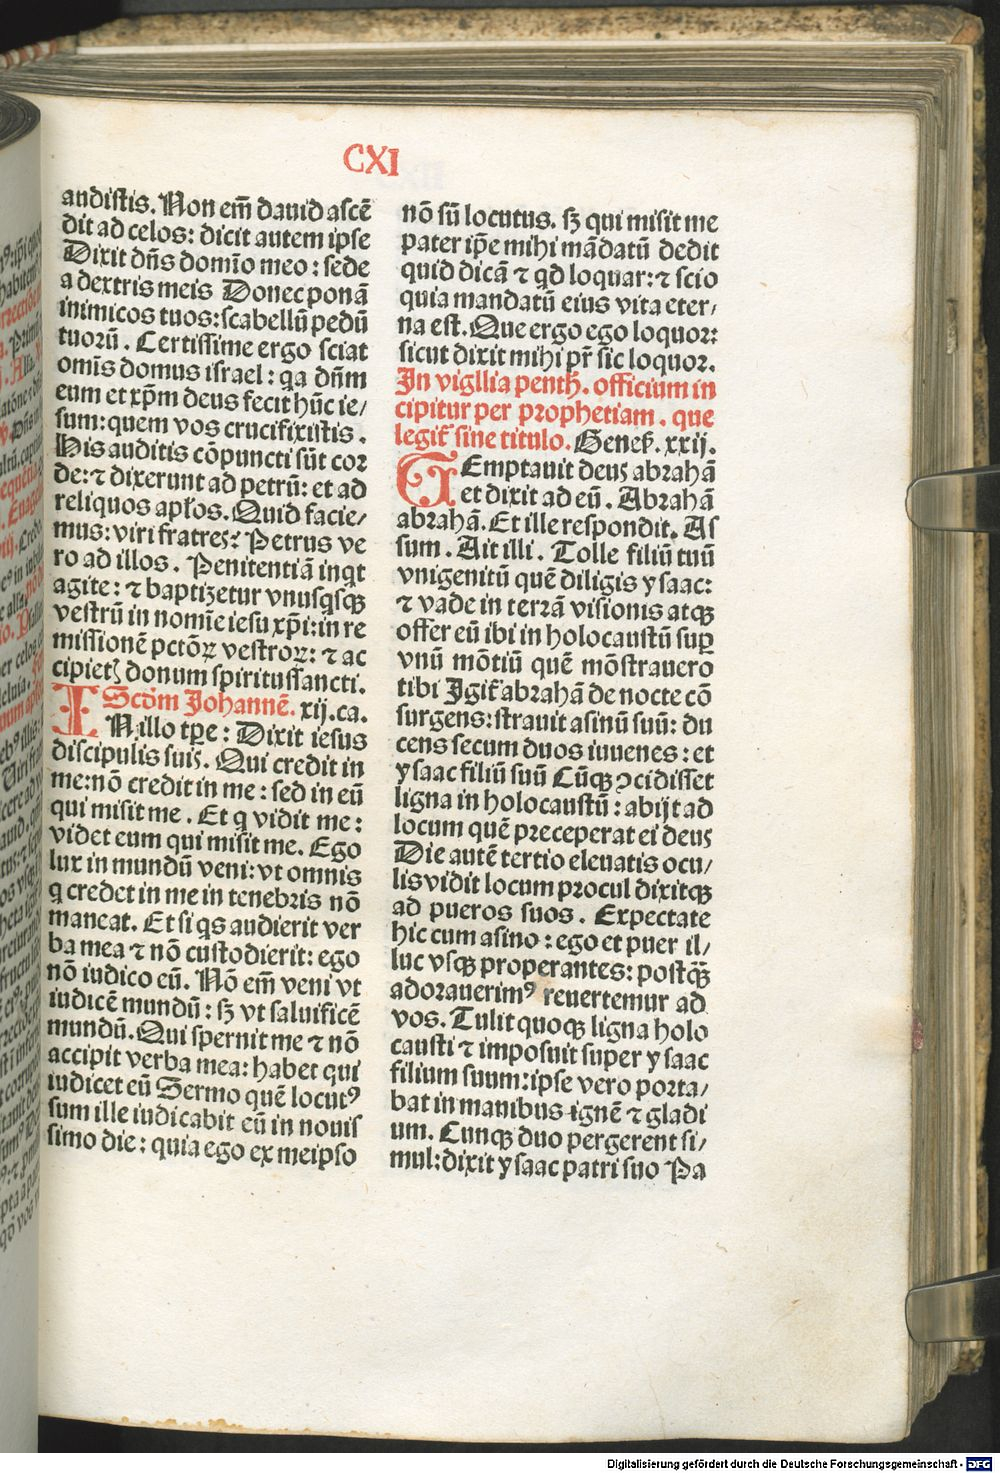 CXI
andistis. Non em̄ dauid ascē
dit ad celos: dicit autem ipse
Dixit dn̄s domīo meo: sede
a dextris meis Donec ponā
inimicos tuos: scabellū pedū
tuorū. Certissime ergo sciat
om̄is domus israel: qa dn̄m
eum et xp̄m deus fecit hūc ie/
sum: quem vos crucifixistis.
His auditis cōpuncti sūt cor
de: ⁊ dixerunt ad petrū: et ad
reliquos apl̄os. Quid facie/
mus: viri fratres? Petrus ve
ro ad illos. Penitentiā inqt
agite: ⁊ baptizetur vnusqsqꝫ
vestrū in nomīe iesu xp̄i: in re
missionē pctōꝝ vestroꝝ: ⁊ ac
cipietꝭ donum spiritussancti.
Scd̄m Johannē. xij. ca.
IN illo tp̄e: Dixit iesus
discipulis suis. Qui credit in
me: nō credit in me: sed in eū
qui misit me. Et q vidit me:
videt eum qui misit me. Ego
lux in mundū veni: vt omnis
q credet in me in tenebris nō
maneat. Et si qs audierit ver
ba mea ⁊ nō custodierit: ego
nō iudico eū. Nō em̄ veni vt
iudicē mundū: sꝫ vt saluificē
mundū. Qui spernit me ⁊ nō
accipit verba mea: habet qui
iudicet eū Sermo quē locutꝰ
sum ille iudicabit eū in nouis
simo die: quia ego ex meipso
nō sū locutus. sꝫ qui misit me
pater ip̄e mihi mādatū dedit
quid dicā ⁊ qd̄ loquar: ⁊ scio
quia mandatū eius vita eter/
na est. Que ergo ego loquor:
sicut dixit mihi pr̄ sic loquor.
In vigllia penth̄. officium in
cipitur per prophetiam. que
legit᷑ sine titulo. Genes̄. xxij.
TEmptauit deus abrahā
et dixit ad eū. Abrahā
abrahā. Et ille respondit. As
sum. Ait illi. Tolle filiū tuū
vnigenitū quē diligis ysaac:
⁊ vade in terrā visionis atqꝫ
offer eū ibi in holocaustū suꝑ
vnū mōtiū quē mōstrauero
tibi Igit᷑ abrahā de nocte cō
surgens: strauit asinū suū: du
cens secum duos iuuenes: et
ysaac filiū suū Cūqꝫ ↄcidisset
ligna in holocaustū: abijt ad
locum quē preceperat ei deus
Die autē tertio eleuatis ocu/
lis vidit locum procul dixitqꝫ
ad pueros suos. Expectate
hic cum asino: ego et puer il/
luc vsqꝫ properantes: postqꝫ̄
adorauerimꝰ reuertemur ad
vos. Tulit quoqꝫ ligna holo
causti ⁊ imposuit super ysaac
filium suum: ipse vero porta/
bat in manibus ignē ⁊ gladi
um. Cunqꝫ duo pergerent si/
mul: dixit ysaac patri suo Pa
Digitalisierung gefördert durch die Deutsche Forschungsgemeinschaft - DFG